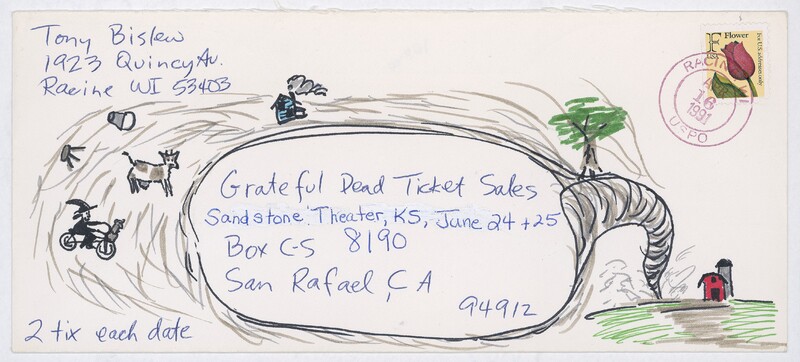 Tony Bislew
1923 Quincy Av.
Racine WI 53403
F Flower
USA
For U.S. addresses only
RACINE
WI
16
1991
USPO
Grateful Dead Ticket Sales
Sandstone Theater, KS, June 24 + 25
Box C-S 8190
San Rafael, CA
94912
2 tix each date